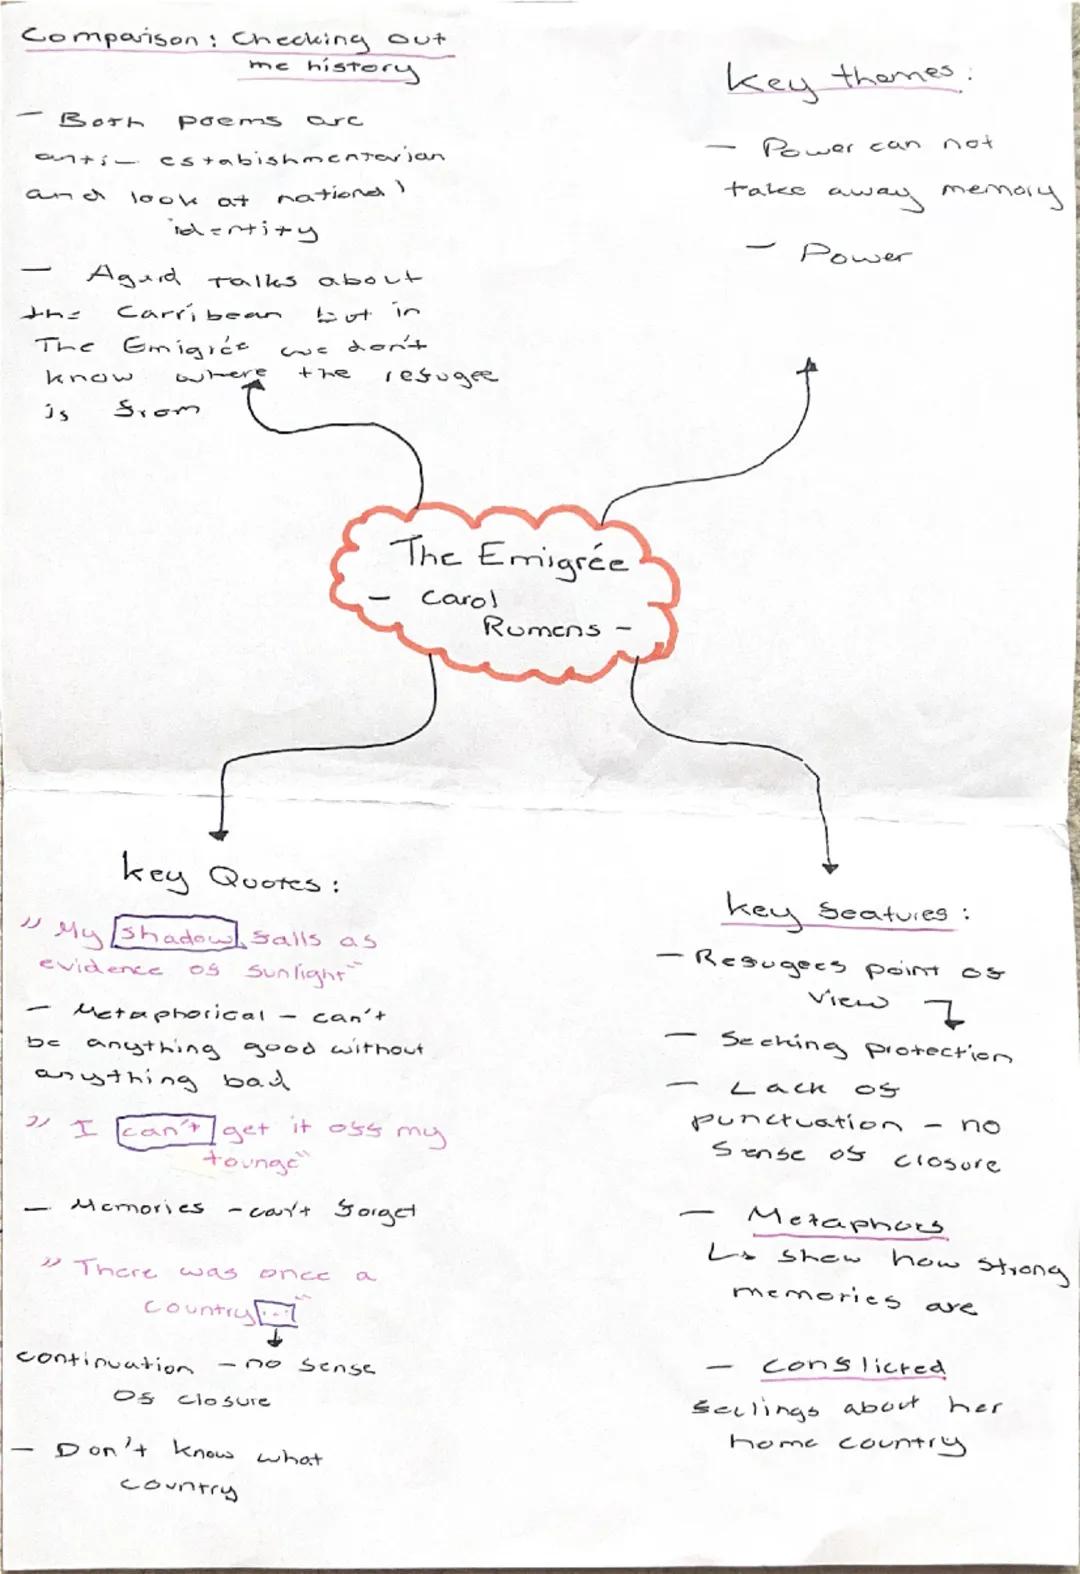 Comparison: Checking out
me history
- Both poems are
anti- estabishmentarian
and look at national
identity
- Agard talks about
the Carribean but in
The Emigrée we don't
know where the refugee
is from
Key themes:
- Power can not
take away memory
- Power
The Emigrée
- Carol
Rumens -
Key Quotes:
"My shadow falls as
evidence of sunlight"
- Metaphorical - can't
be anything good without
anything bad
"I can't get it off my
tounge"
- Memories - can't forget
"There was once a
country..."
continuation - no sense
of closure
- Don't know what
country
Key features:
- Refugees point of
view
- Seeking protection
- Lack of
punctuation - no
sense of closure
- Metaphors
↳ show how strong
memories are
- Conflicted
feelings about her
home country